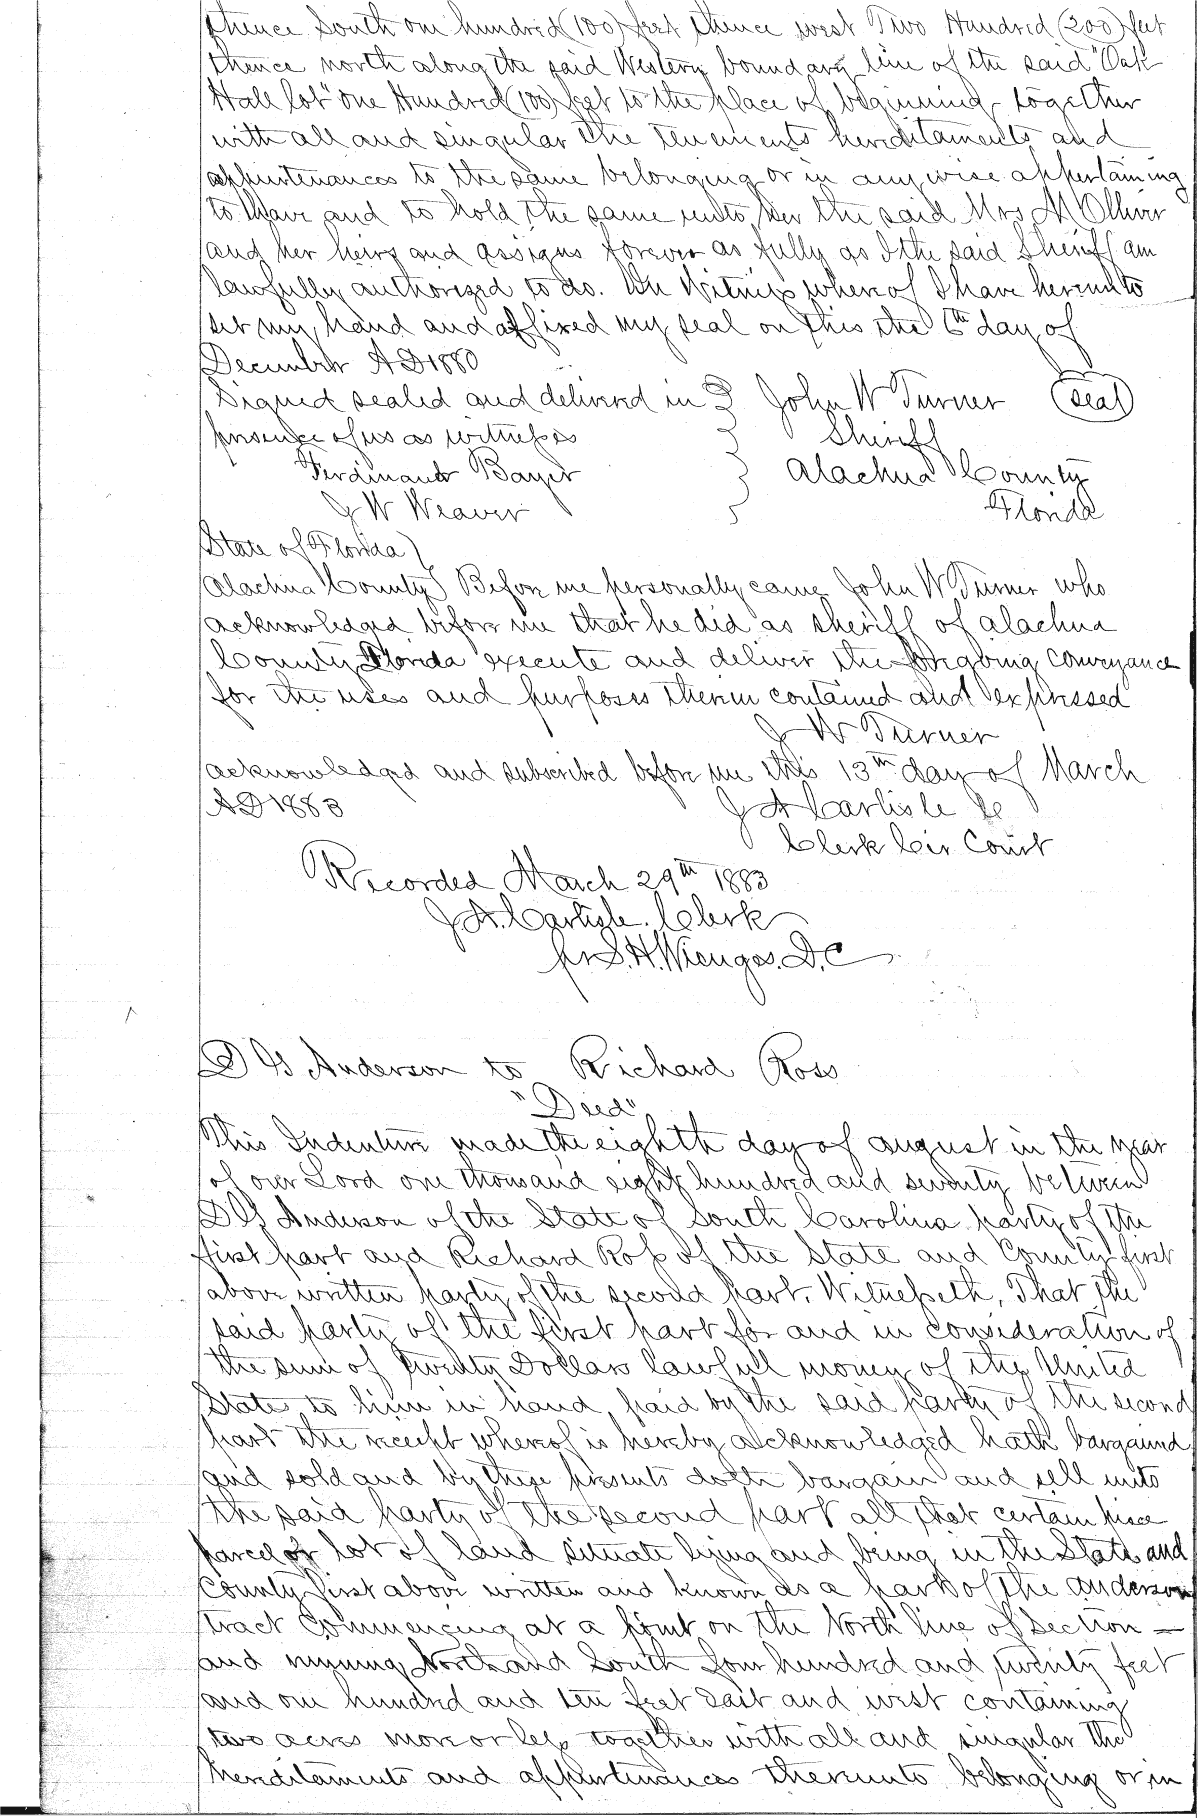 thence South one hundred (100) feet thence west Two Hundred (200) feet
thence north along the said Western boundary line of the said "Oak
Hall lot" one Hundred (100) feet to the place of beginning together
with all and singular the tenements hereditaments and
appurtenances to the same belonging or in any wise appertaining
to have and to hold the same unto her the said Mrs M Olliver
and her heirs and assigns forever as fully as I the said Sheriff am
lawfully authorized to do. In Witness whereof I have hereunto
set my hand and affixed my seal on this the 6th day of
December AD 1880
Signed sealed and delivered in } John W Turner (Seal)
presence of us as witnesses } Sheriff
Ferdinand Bayer } Alachua County
J W Weaver } Florida
State of Florida )
Alachua County ) Before me personally came John W Turner who
acknowledged before me that he did as sheriff of Alachua
County Florida execute and deliver the foregoing conveyance
for the uses and purposes therein contained and expressed
J W Turner
acknowledged and subscribed before me this 13th day of March
AD 1883 J A Carlisle
Clerk Cir Court
Recorded March 29th 1883
J A. Carlisle. Clerk
pr S. H. Wienges. D. C
D G Anderson to Richard Ross
"Deed"
This Indenture made the eighth day of august in the year
of our Lord one thousand eight hundred and seventy between
D G Anderson of the State of South Carolina party of the
first part and Richard Ross of the State and County first
above written party of the second part. Witnesseth, That the
said party of the first part for and in consideration of
the sum of twenty Dollars lawfull money of the United
States to him in hand paid by the said party of the second
part the receipt whereof is hereby acknowledged hath bargained
and sold and by these presents doth bargain and sell unto
the said party of the second part all that certain piece
parcel or lot of land situate lying and being in the State and
County first above written and known as a part of the anderson
tract Commencing at a point on the North line of Section —
and running North and South four hundred and twenty feet
and one hundred and ten feet East and west containing
two acres more or less together with all and singular the
hereditaments and appurtenances thereunto belonging or in